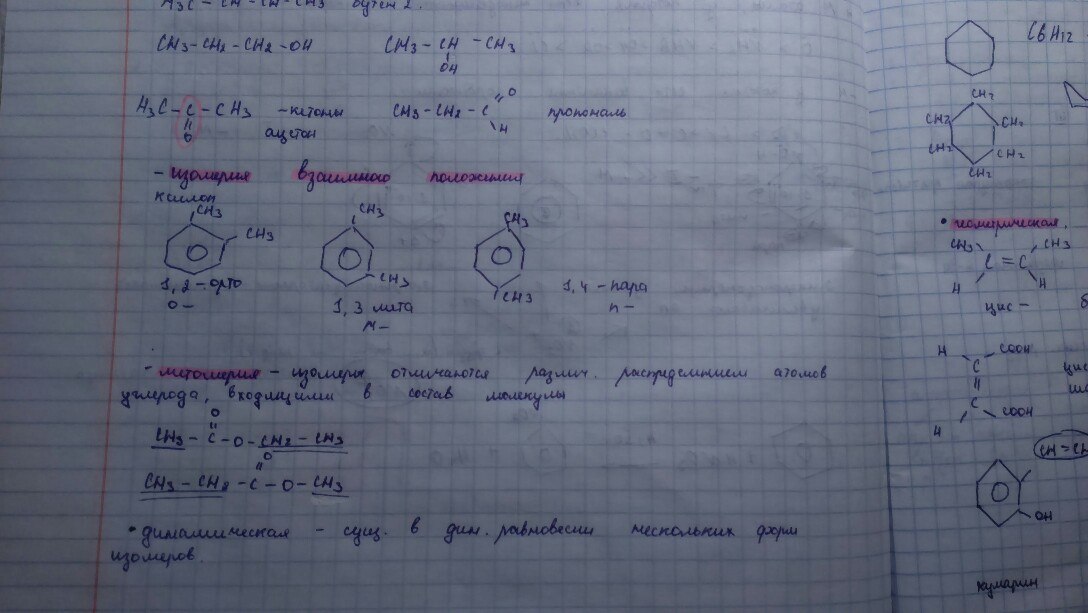 H3C – CH = CH – CH3 бутен 2.
CH3 – CH2 – CH2 – OH CH3 – CH – CH3
OH
H3C – C – CH3 – кетоны CH3 – CH2 – C O
O ацетон H пропональ
– изомерия взаимного положения
кислот
CH3 CH3 CH3
CH3 CH3 CH3
1,2 – орто 1,3 мета 1,4 – пара
о – м – п –
– метамерия – изомеры отличаются различ. распределением атомов
углерода, входящими в состав молекулы
O
CH3 – C – O – CH2 – CH3
O
CH3 – CH2 – C – O – CH3
• динамическая – сущ. в дин. равновесии нескольких форм
изомеров.
C6H12
CH2
CH2 CH2
CH2 CH2
CH2
• геометрическая.
CH3 CH3
C = C
H H
цис –
H C COOH
цис
C COOH
H
CH = CH
OH
кумарин